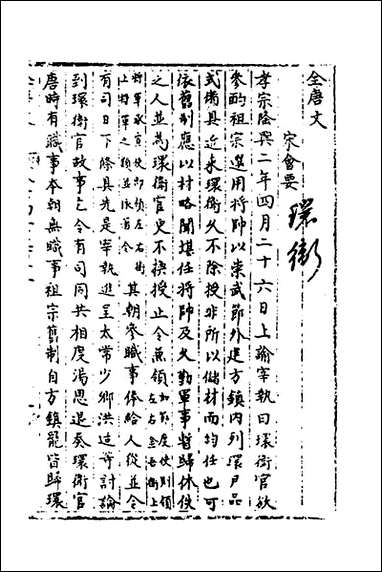 全唐文
宋會要
環衛
孝宗隆興二年四月二十六日上諭宰執曰環衛官欲
參酌祖宗選用將帥以崇武節外建方鎮内列環尹品
式備具近來環衛久不除授非所以儲材而均任也可
依舊制應以材略聞堪任將帥及久勤軍事暫歸休佚
之人並為環衛官更不換授止令兼領如節度使則領左右金吾衛上
將軍承宣使則領左右衛上將軍之類並依舊令其朝參職事俸給人從並令
有司日下條具先是宰執進呈太常少卿洪适等討論
到環衛官故事乞令有司同共相度湯思退奏環衛官
唐時有職事本朝無職事祖宗舊制自方鎮罷皆歸環